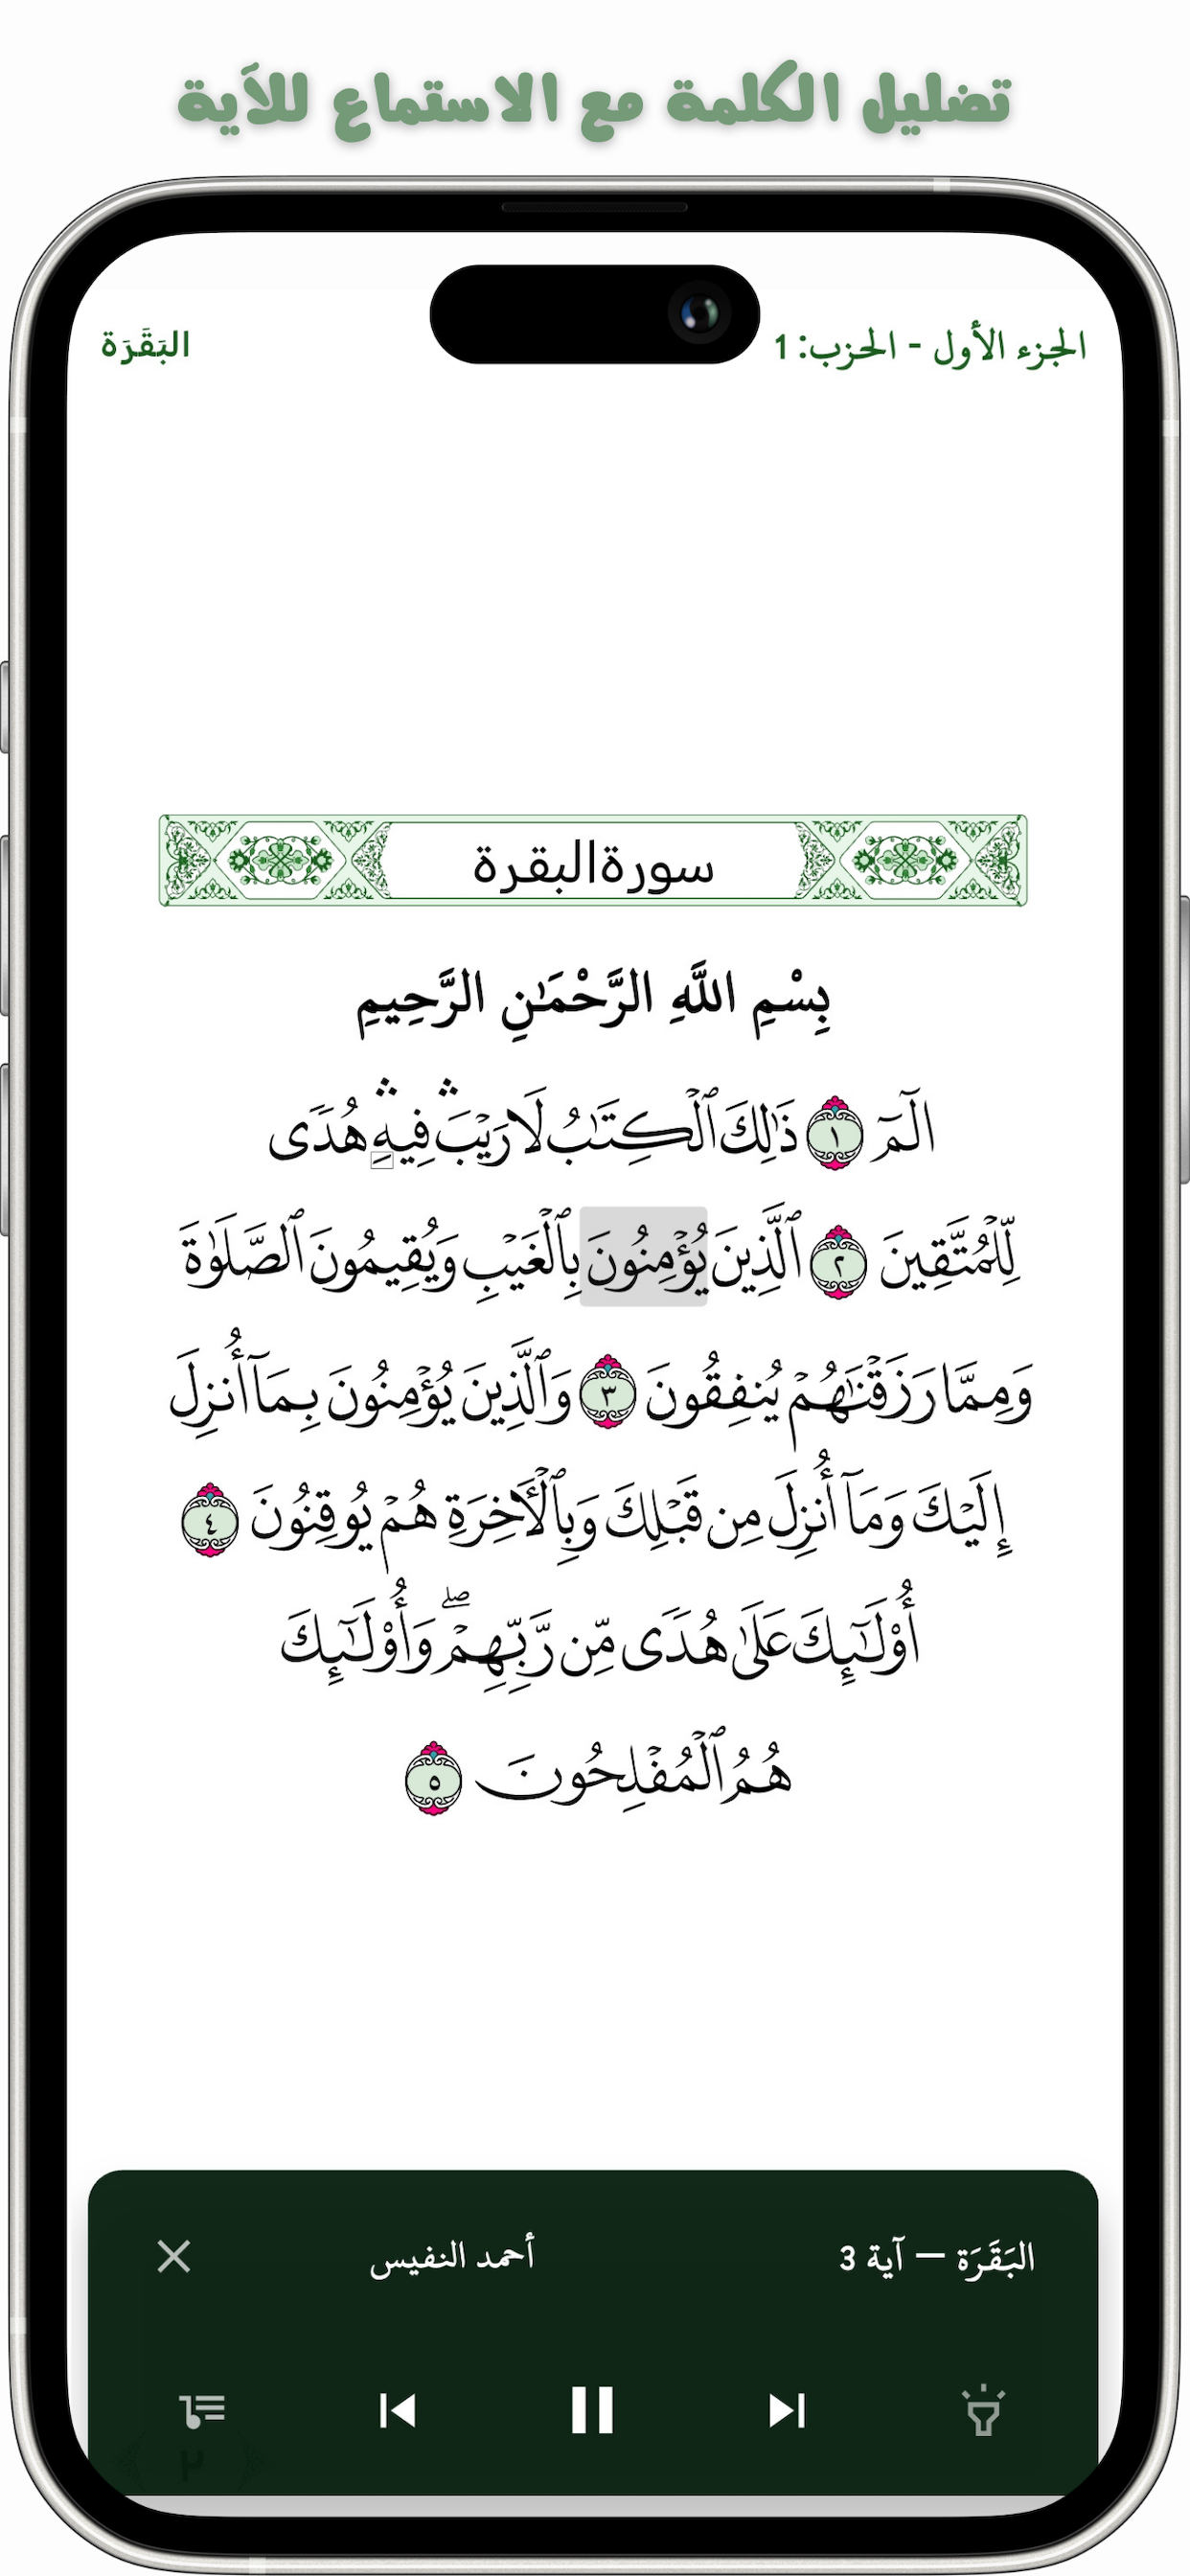 تضليل الكلمة مع الاستماع للآية
الجزء الأول - الحزب: 1
البَقَرَة
سورةالبقرة
بِسْمِ اللَّهِ الرَّحْمَٰنِ الرَّحِيمِ
الٓمٓ ١ ذَٰلِكَ ٱلْكِتَٰبُ لَا رَيْبَ ۛ فِيهِ ۛ هُدًى
لِّلْمُتَّقِينَ ٢ ٱلَّذِينَ يُؤْمِنُونَ بِٱلْغَيْبِ وَيُقِيمُونَ ٱلصَّلَوٰةَ
وَمِمَّا رَزَقْنَٰهُمْ يُنفِقُونَ ٣ وَٱلَّذِينَ يُؤْمِنُونَ بِمَآ أُنزِلَ
إِلَيْكَ وَمَآ أُنزِلَ مِن قَبْلِكَ وَبِٱلْأَخِرَةِ هُمْ يُوقِنُونَ ٤
أُو۟لَٰٓئِكَ عَلَىٰ هُدًى مِّن رَّبِّهِمْ ۖ وَأُو۟لَٰٓئِكَ
هُمُ ٱلْمُفْلِحُونَ ٥
البَقَرَة — آية 3
أحمد النفيس
٢